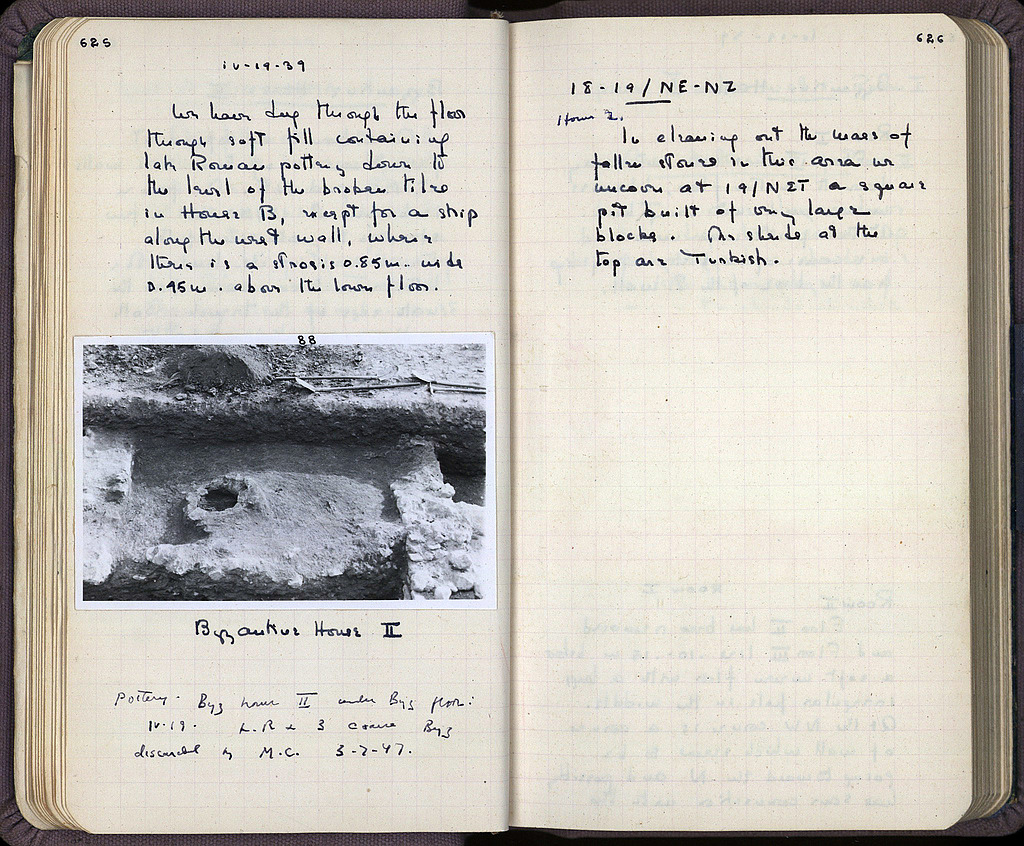 625
IV-19-39
We have dug through the floor
through soft fill containing
late Roman pottery down to
the level of the broken tiles
in House B, except for a strip
along the west wall, where
there is a strosis 0.85m. wide
0.45m. above the lower floor.
88
Byzantine House II
Pottery. Byz house II under Byz floor:
IV.19. L.R & 3 coarse Byz
discarded by M.C. 3-7-47.
626
18-19/NE-NZ
House 2.
In cleaning out the mass of
fallen stones in this area we
uncover at 19/NΣT a square
pit built of very large
blocks. The sherds at the
top are Turkish.